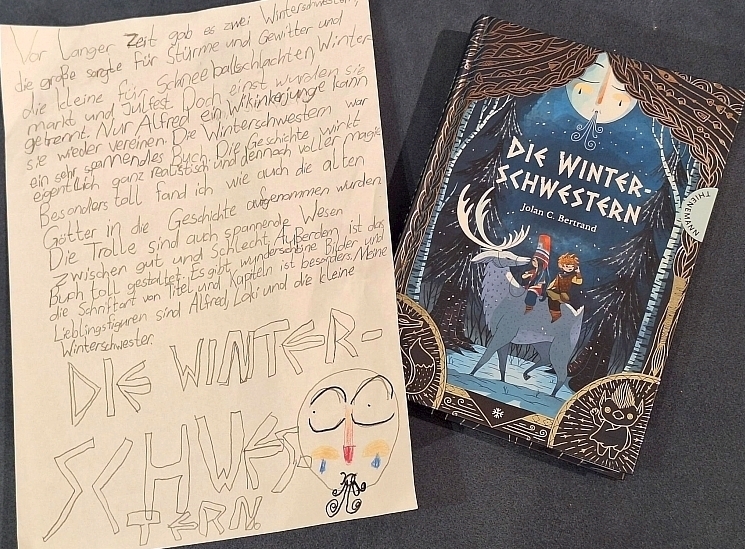 Vor langer Zeit gab es zwei Winterschwestern,
die große sorgte für Stürme und Gewitter und
die kleine für Schneeballschlachten, Winter-
markt und Julfest. Doch einst wurden sie
getrennt. Nur Alfred ein Wikinkerjunge kann
sie wieder vereinen. Die Winterschwestern war
ein sehr spannendes Buch. Die Geschichte wirkt
eigentlich ganz realistisch und dennoch voller magie
Besonders toll fand ich wie auch die alten
Götter in die Geschichte aufgenommen wurden
Die Trolle sind auch spannende Wesen
zwischen gut und schlecht. Außerdem ist das
Buch toll gestaltet. Es gibt wunderschöne Bilder und
die Schriftart von Titel und Kapiteln ist besonders. Meine
Lieblingsfiguren sind Alfred, Loki und die kleine
Winterschwester.
DIE WINTER-
SCHWES
TERN
DIE WINTER-
SCHWESTERN
Jolan C. Bertrand
THIENEMANN